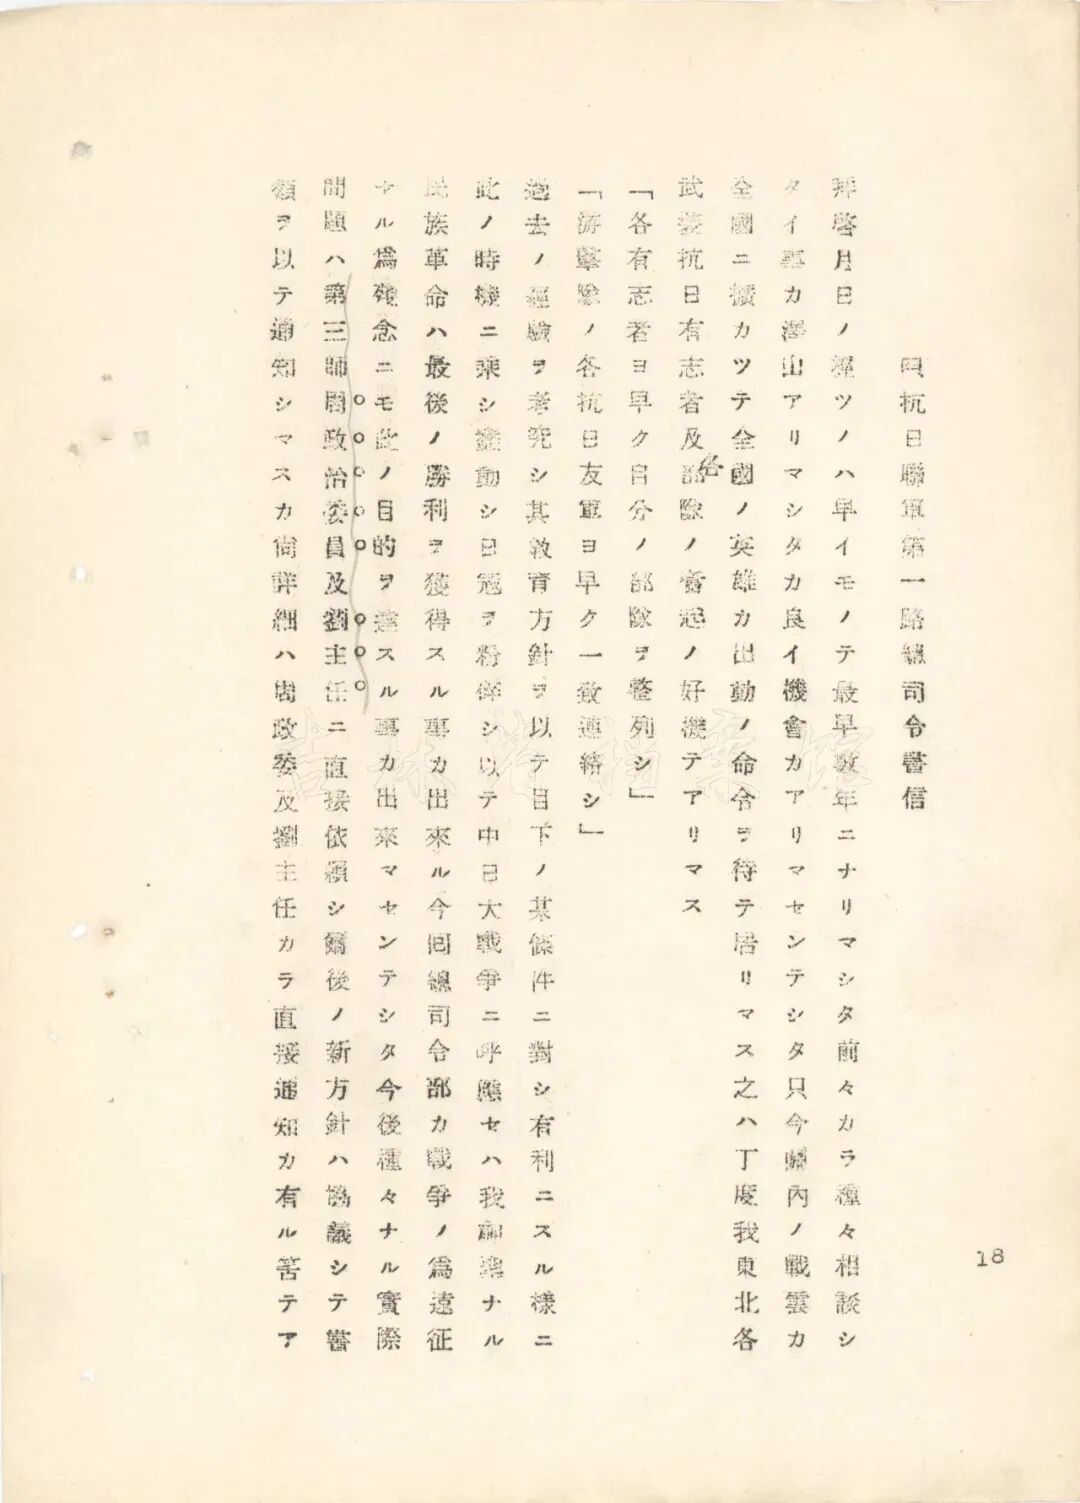 抗日聯軍第一路總司令書信
拜啓月日ノ經ツノハ早イモノテ最早數年ニナリマシタ前々カラ種々相談シ
タイ事カ澤山アリマシタカ良イ機會カアリマセンテシタ只今關內ノ戰雲カ
全國ニ擴カツテ全國ノ英雄カ出動ノ命令ヲ待テ居リマス之ハ丁度我東北各
武裝抗日有志者及各部隊ノ奮起ノ好機テアリマス
「各有志者ヨ早ク自分ノ部隊ヲ整列シ」
「游擊隊ノ各抗日友軍ヨ早ク一致連絡シ」
過去ノ經驗ヲ考究シ其敎育方針ヲ以テ目下ノ某條件ニ對シ有利ニスル樣ニ
此ノ時機ニ乘シ動シ日冠ヲ粉碎シ以テ中日大戰爭ニ呼應セハ我神聖ナル
民族革命ハ最後ノ勝利ヲ獲得スル事カ出來ル今回總司令部カ戰爭ノ爲遠征
セル爲殘念ニモ此ノ目的ヲ達スル事カ出來マセンテシタ今後種々ナル實際
問題ハ第三師周政治委員及劉主任ニ直接依賴シ爾後ノ新方針ハ協議シテ書
類ヲ以テ通知シマスカ尙詳細ハ周政委及劉主任カラ直接通知カ有ル筈テア
18
吉林省档案馆